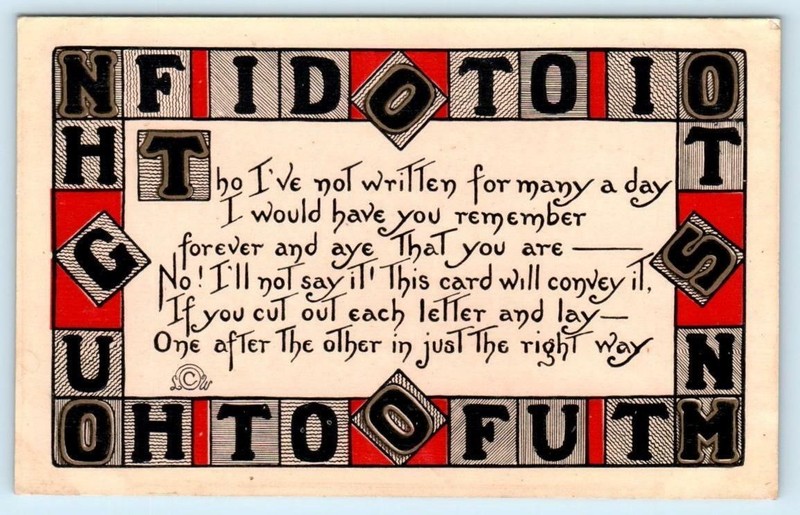 N F I D O T O I O
H T
G S
U N
O H T O O F U T M
Tho I've not written for many a day
I would have you remember
forever and aye That you are ———
No! I'll not say it! This card will convey it,
If you cut out each letter and lay—
One after the other in just the right way.